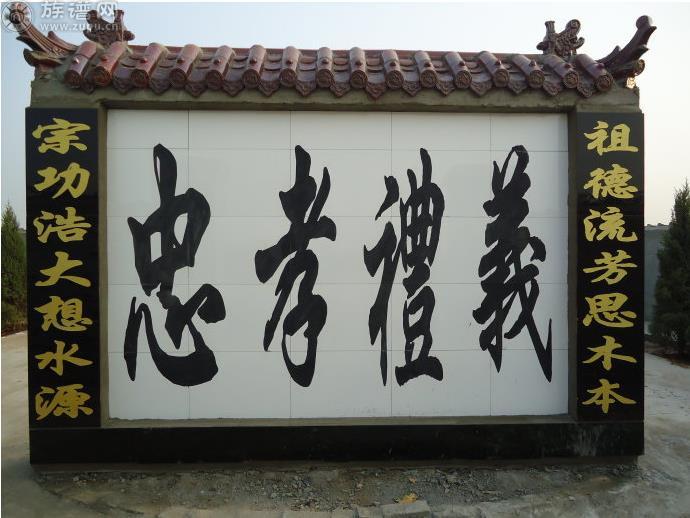 族谱网
www.zupu.cn
祖德流芳思木本
忠孝禮義
宗功浩大想水源